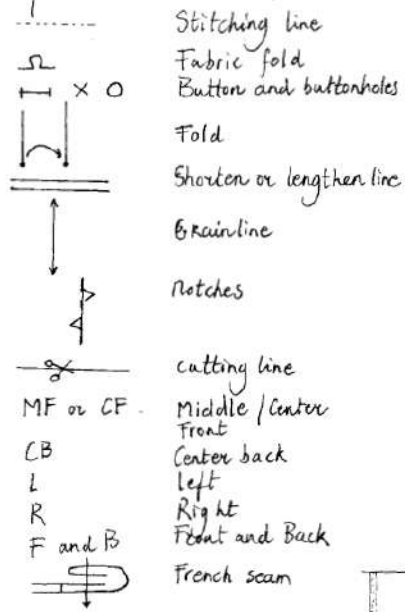 Stitching line
Fabric fold
X O Button and buttonholes
Fold
Shorten or lengthen line
Grainline
Notches
cutting line
MF or CF. Middle / Center
Front
CB Center back
L Left
R Right
F and B Front and Back
French seam